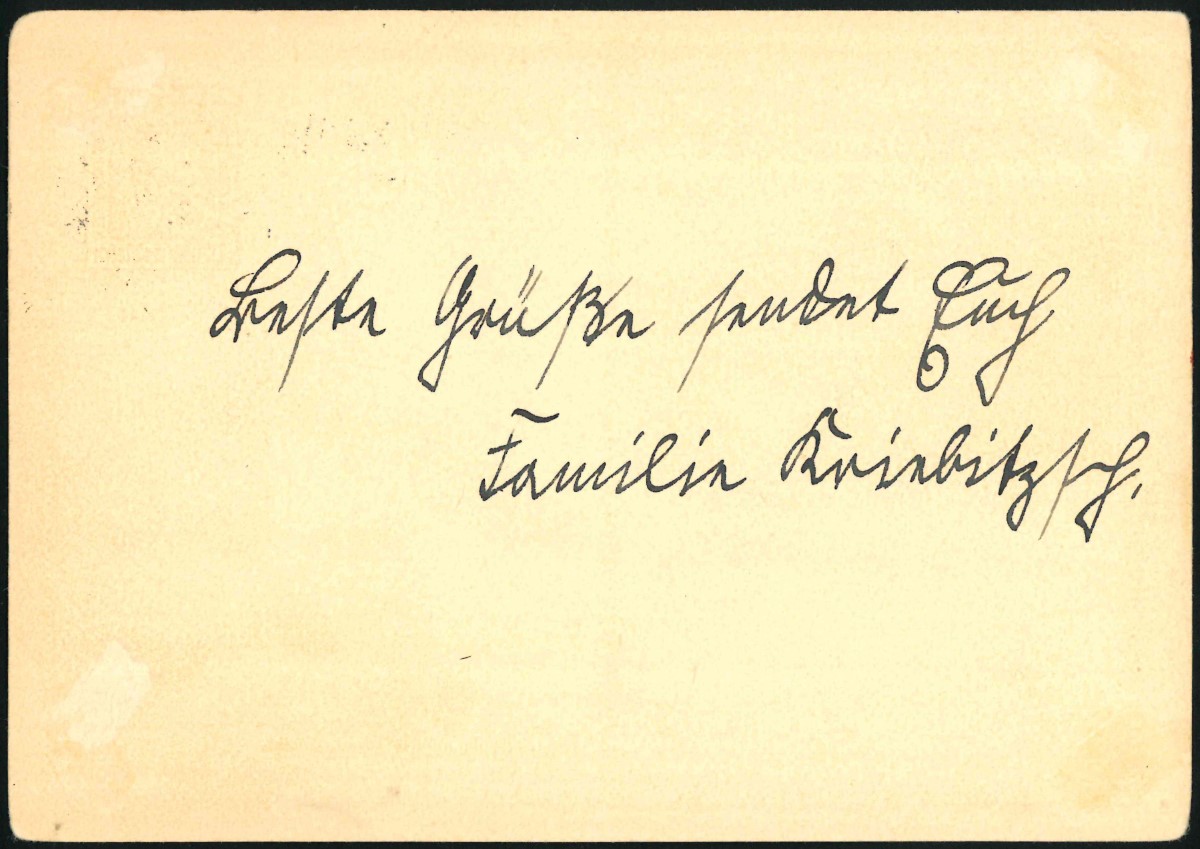 Beste Grüße sendet Euch
Familie Kriebitzsch.